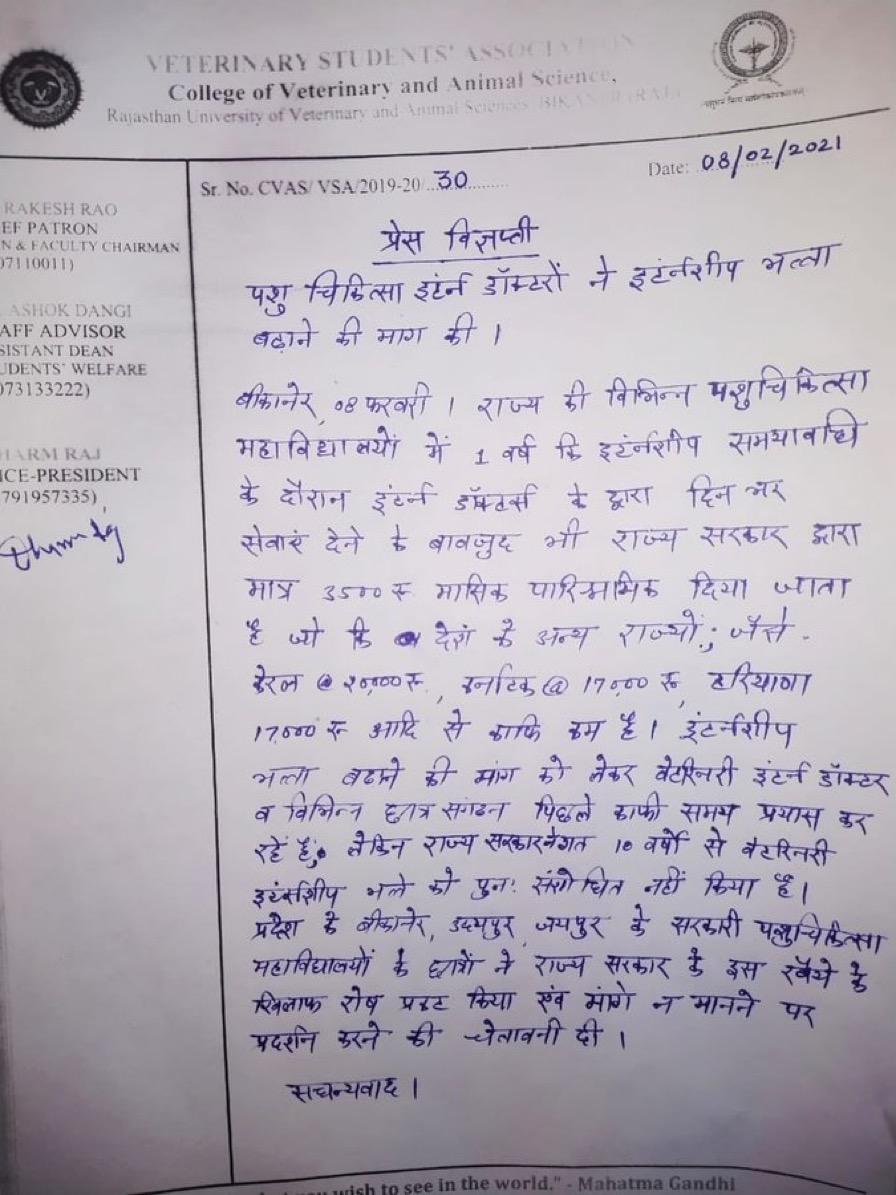 VETERINARY STUDENTS' ASSOCIATION
College of Veterinary and Animal Science,
Rajasthan University of Veterinary and Animal Sciences, BIKANER (RAJ.)
Sr. No. CVAS/ VSA/2019-20/...30.........
Date: 08/02/2021
RAKESH RAO
EF PATRON
N & FACULTY CHAIRMAN
07110011)
ASHOK DANGI
AFF ADVISOR
SISTANT DEAN
UDENTS' WELFARE
073133222)
HARM RAJ
ICE-PRESIDENT
791957335)
प्रेस विज्ञप्ती
पशु चिकित्सा इंटर्न डॉक्टरों ने इटंर्नशीप भत्ता
बढ़ाने की मांग की ।
बीकानेर, 08 फरवरी । राज्य की विभिन्न पशुचिकित्सा
महाविद्यालयों में 1 वर्ष कि इटंर्नशीप समयावधि
के दौरान इंटर्न डॉक्टर्स के द्वारा दिन भर
सेवाएं देने के बावजुद भी राज्य सरकार द्वारा
मात्र 3500 रू मासिक पारिश्रामिक दिया जाता
है जो कि देश के अन्य राज्यों; जैसे -
केरल @ २०,००० रू, कर्नाटक @ 17000 रू, हरियाणा
17,000 रू आदि से काफि कम है । इंटर्नशीप
भत्ता बढाने की मांग को लेकर वेटरिनरी इंटर्न डॉक्टर
व विभिन्न छात्र संगठन पिछले काफी समय प्रयास कर
रहें हैं, लेकिन राज्य सरकार ने गत 10 वर्षों से वेटरिनरी
इटंर्नशीप भत्ते को पुनः संशोधित नहीं किया है ।
प्रदेश के बीकानेर, उदयपुर, जयपुर के सरकारी पशुचिकित्सा
महाविद्यालयों के छात्रों ने राज्य सरकार के इस रवैये के
खिलाफ रोष प्रकट किया एंव मांगे न मानने पर
प्रदर्शन करने की चेतावनी दी ।
सधन्यवाद ।
you wish to see in the world." - Mahatma Gandhi